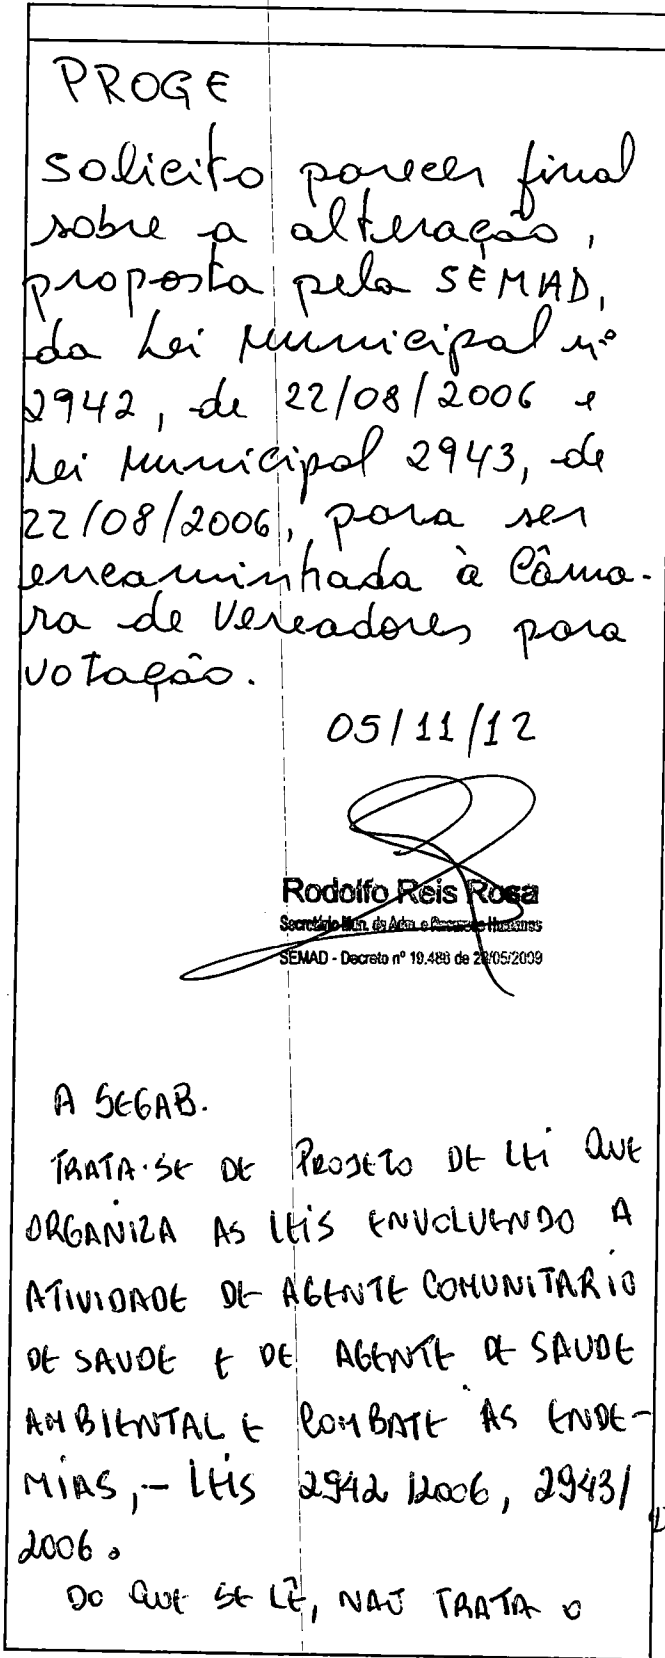 PROGE
Solicito parecer final
sobre a alteração,
proposta pela SEMAD,
da Lei Municipal nº
2942, de 22/08/2006 e
Lei Municipal 2943, de
22/08/2006, para ser
encaminhada à Câma-
ra de Vereadores para
votação.
05/11/12
Rodolfo Reis Rosa
Secretário Mun. de Adm. e Recursos Humanos
SEMAD - Decreto nº 19.486 de 2/05/2009
A SEGAB.
TRATA-SE DE PROJETO DE LEI QUE
ORGANIZA AS LEIS ENVOLVENDO A
ATIVIDADE DE AGENTE COMUNITARIO
DE SAUDE E DE AGENTE DE SAUDE
AMBIENTAL E COMBATE ÀS ENDE-
MIAS, - LEIS 2942/2006, 2943/
2006.
DO QUE SE LÊ, NAO TRATA O